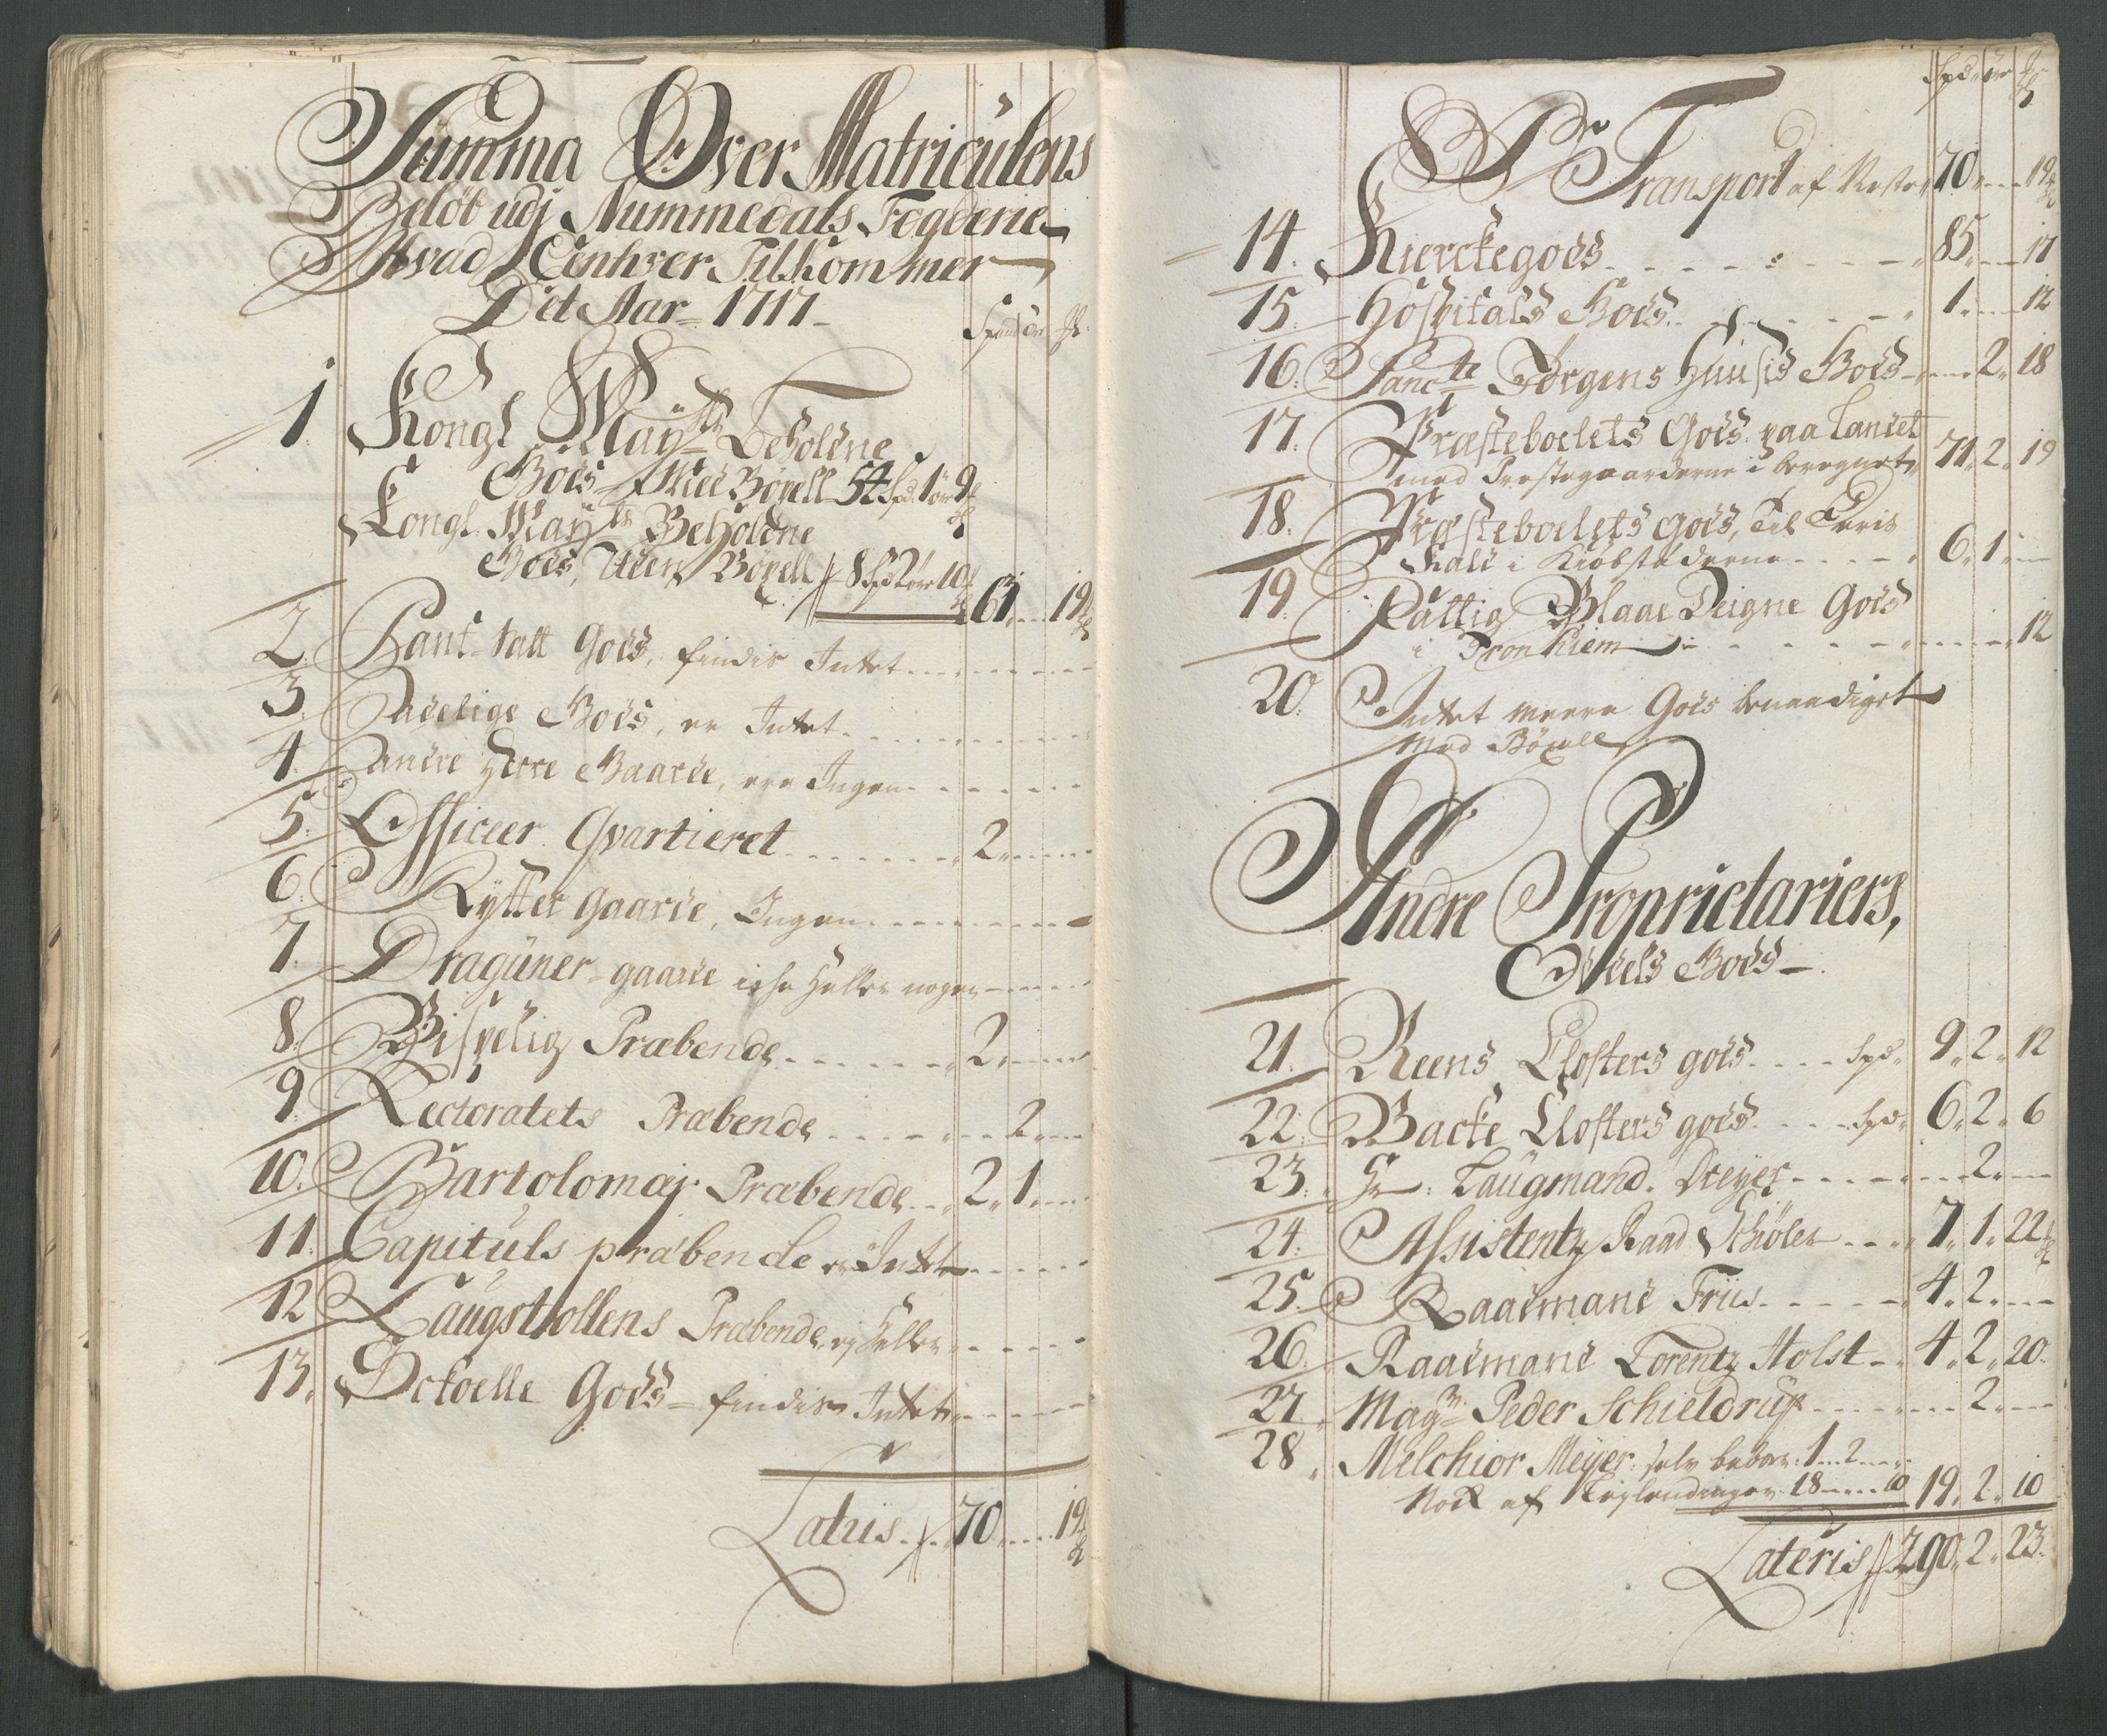 Summa Over Matriculens
Beløb udj Nummedals Fogderie
Hvad Eenhver Tilkommer
Dit Aar 1717
Spand ør
1. Kongl Mayts Beholdne
Gods Med Bøxell 54 spd 1 ør 9
Kongl. Mayts Beholdne
Gods, Uden Bøxell 8 Spd 2 ør 10 61 19
2. Pant-satt Gods, findis Intet
3. Adelige Gods, er Intet
4. Andre Herre Gaarde, ere Ingen
5. Officeer Qvartieret 2
6. Rytter Gaarde, Ingen
7. Dragüner gaarde iche Heller nogen
8. Bispelig Præbende 2
9. Rectoratets Præbende 2
10. Bartolomæj Præbende 2 1
11. Capituls præbende er Intet
12 Laugstollens Præbende ej Heller
13. Gods findis Intet
Latus 70 19
Spd ør
Transport af 70 19
14. Kierckegods 85 17
15. Hospitals Gods 1 12
16. Sancte Jørgens Huusis Gods 2 18
17. Præsteboelets Gods paa Landet
med Prestegaarderne i beregnet 71 2 19
18. Præsteboelets gods, Til
Kald i Kiøbstæderne 6 1
19. Fattig Blaae Deigne Gods
i Tronhiem 12
20. Intet meere Gods benaadiget
Med Bøxell
Andre Proprietariers,
Odels Gods
21. Reens Closters gods Spd 9 2 12
22. Backe Closters gods Spd 6 2 6
23. Hr. Laugmand Dreyer 2
24. Assistentz Raad Schøler 7 1 22
25. Raadmand Friis 4 2
26. Raadmand Lorentz Holst 4 2 20
27. Magr Peder Schieldrup 2
28. Melchior Meyer selv beboer 1 2
Nock af Leylendinger 18 10 19 2 10
Lateris 290 2 23